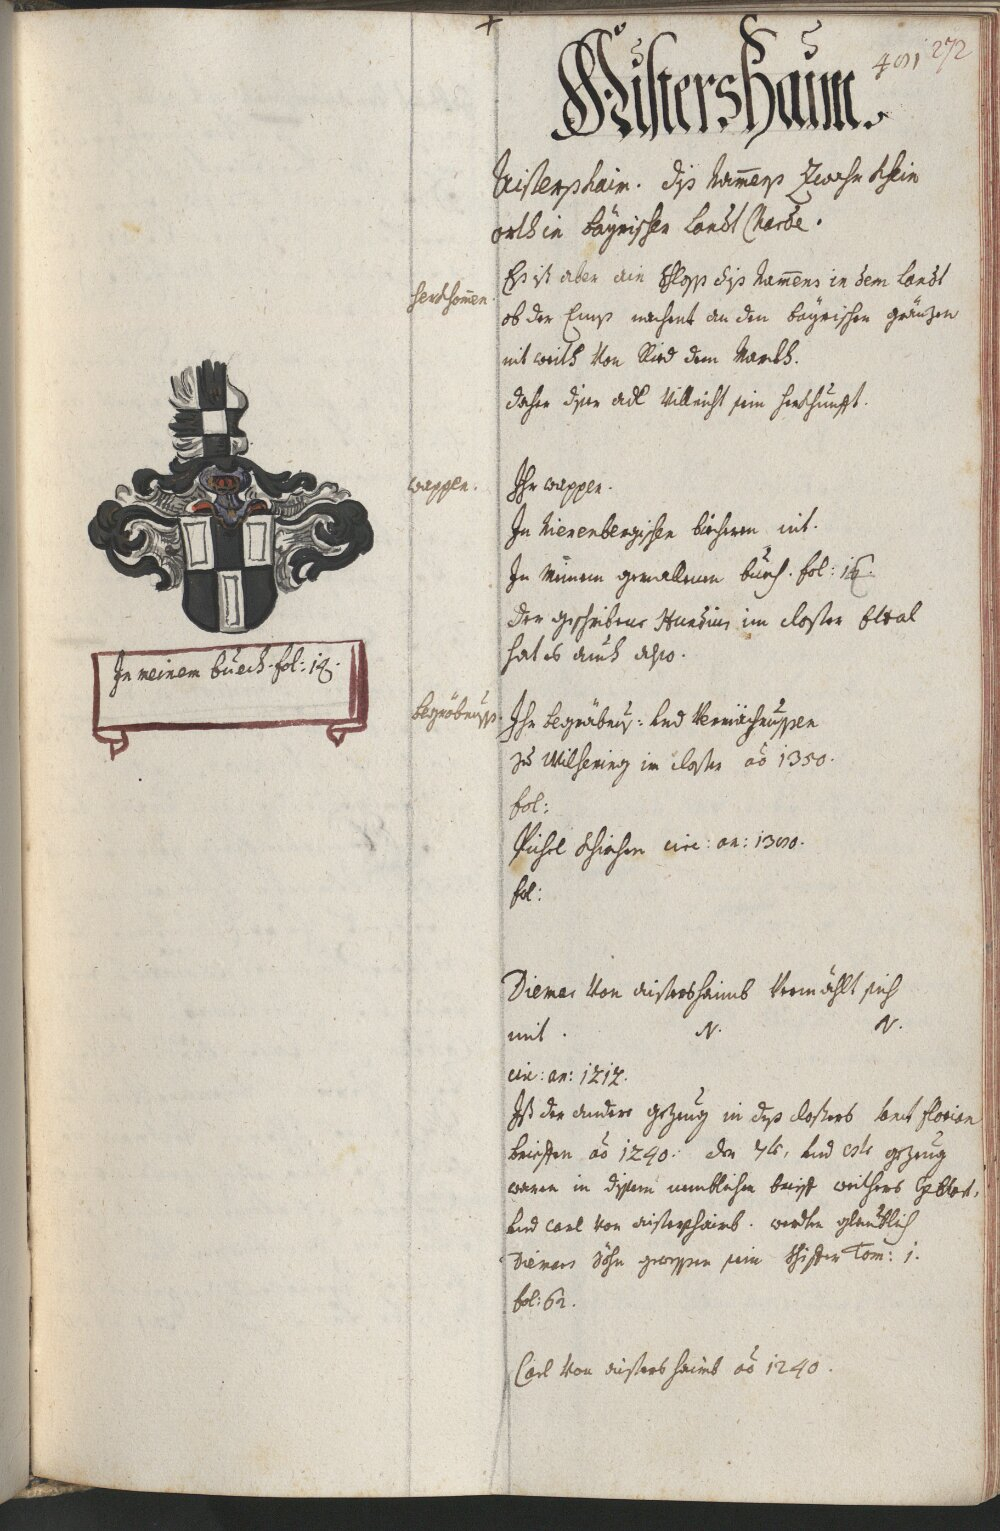 Aistershaim.
401 272
Aistershaim. diß Nam̄enß Zwahr khein
orth in bäyrischer Landt Charde.
herkhom̄en.
Eß ist aber ain Schloß diß Nam̄ens in dem Landt
ob der Ennß nachent an den bäyrischen gränzen
nit weith Von Ried dem Markh.
daher diser adl Villeicht sein herkhunfft.
wappen.
Ihr wappen.
In Nierenbergischen büechern nit.
In meinem gemallenen buech. fol: 14.
der geschribene Hundius im closter Ettal
hat es auch also.
In meinem buech. fol: 14.
begröbnuß.
Ihr begräbnuß: und Vermächnussen
zu Wilhering im closter ao 1350.
fol:
Pichel Khirchen circ: an: 1300.
fol:
Diemar Von aistershaimb Vermählt sich
mit . N. N.
circ: an: 1212.
Ist der andere gezeug in deß closters sant florian
brieffen ao 1240. der 7te, und 8te gezeug
waren in disem nemblichen brieff
und Carl Von aistershaimb. werden glaublich
Diemars Söhn gewessen sein Tom: 1.
fol: 62.
Carl Von aistershaimb ao 1240.